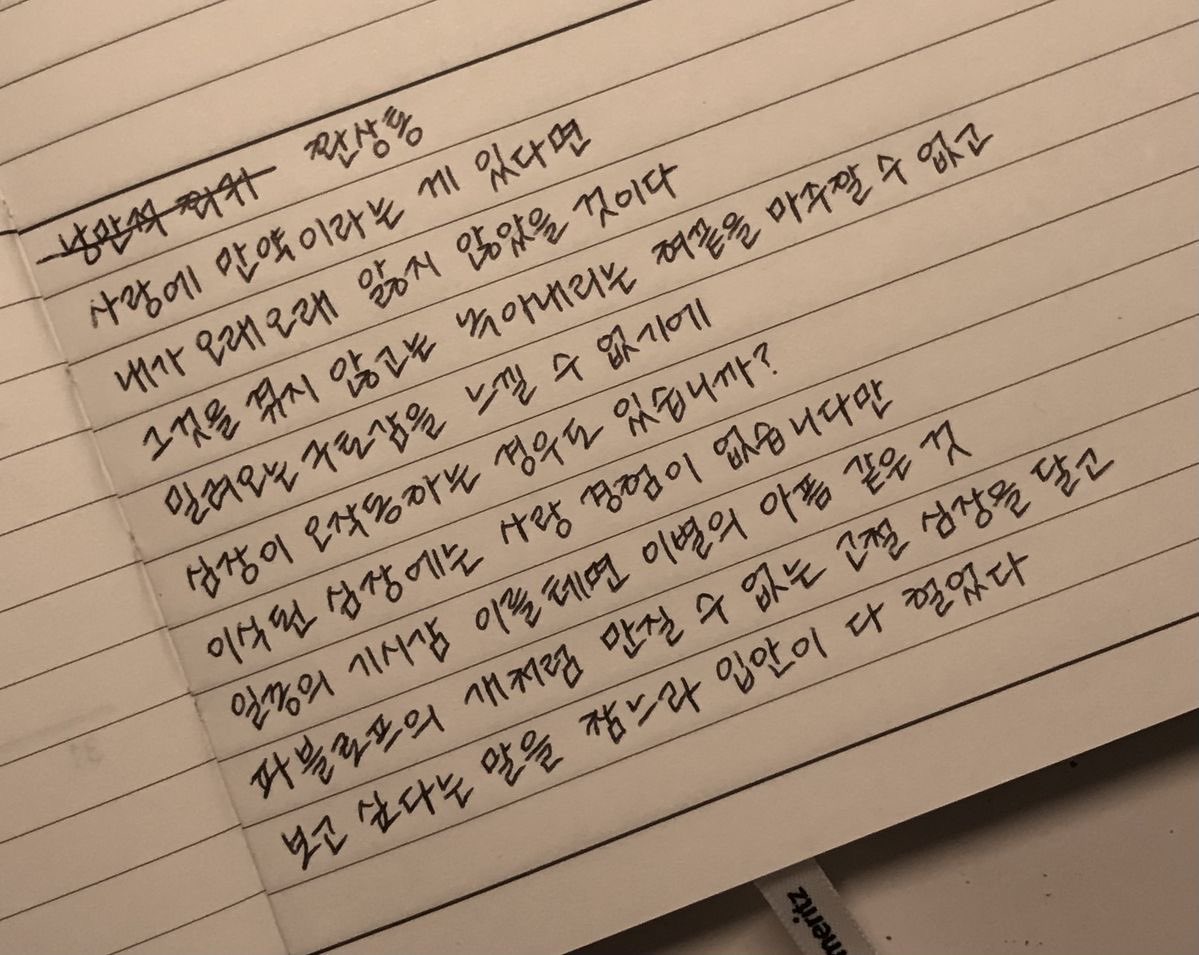 낭만적 허기 환상통
사랑에 만약이라는 게 있다면
내가 오래오래 앓지 않았을 것이다
그것을 겪지 않고는 녹아내리는 혀끝을 마주할 수 없고
밀려오는 구토감을 느낄 수 없기에
심장이 오작동하는 경우도 있습니까?
이식된 심장에는 사랑 경험이 없습니다만
일종의 기시감 이를테면 이별의 아픔 같은 것
파블로프의 개처럼 만질 수 없는 근절 심장을 달고
보고 싶다는 말을 참느라 입안이 다 헐었다
meritz